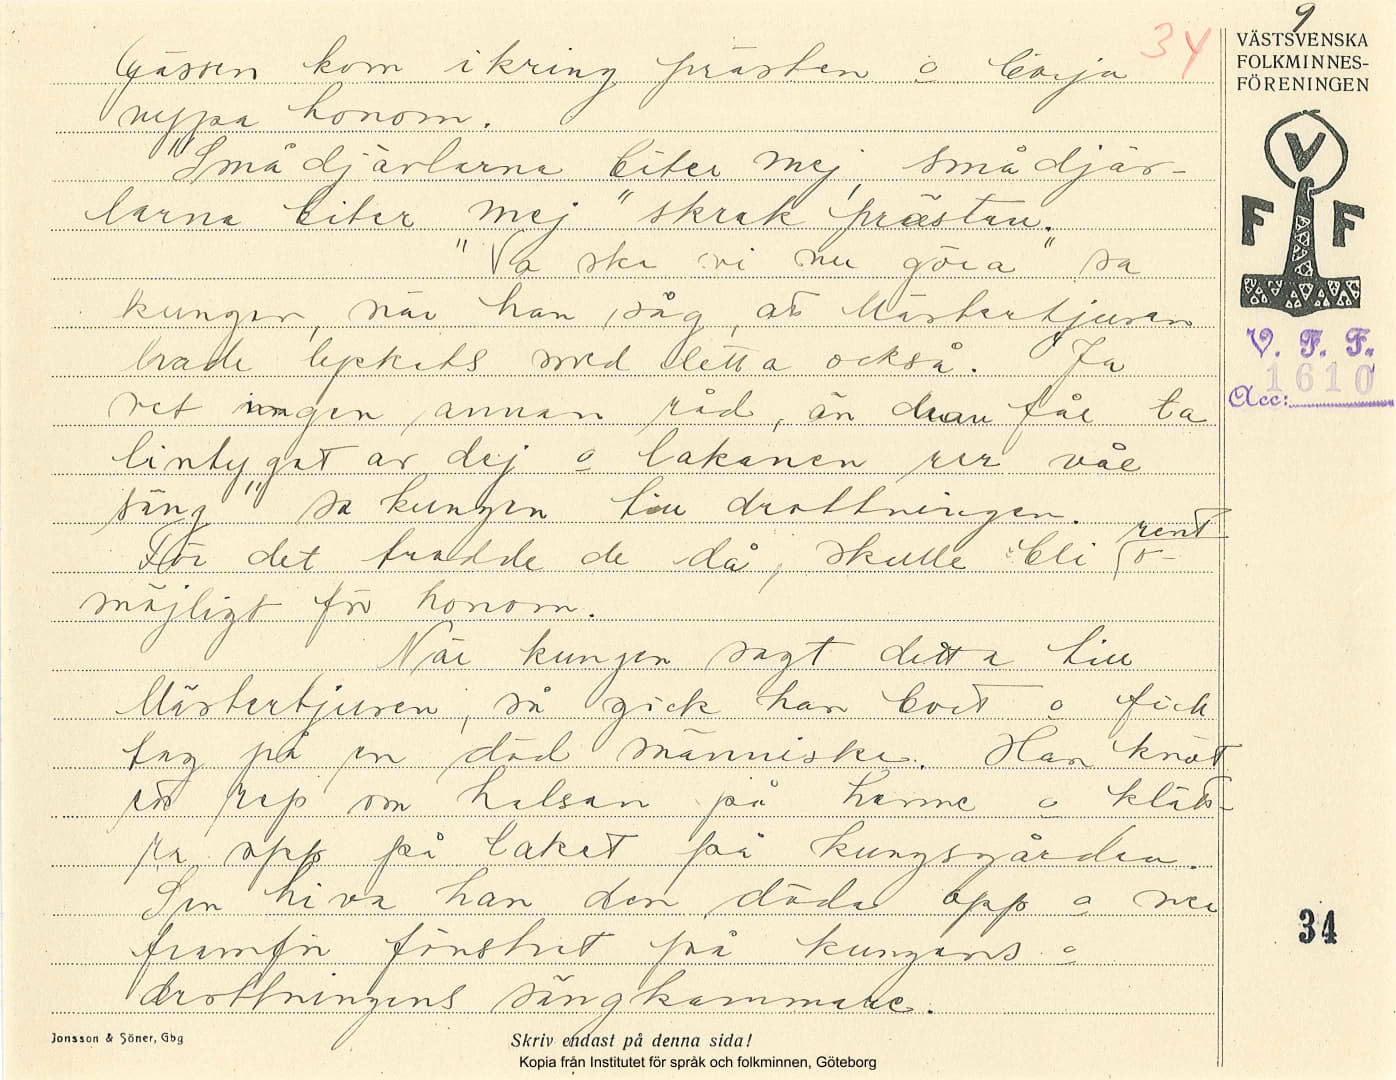 9
34
VÄSTSVENSKA
FOLKMINNES-
FÖRENINGEN
Gässen kom ikring prästen o börja
nypa honom.
"Smådjävlarna biter mej, smådjäv-
larna biter mej" skrek prästen.
"Va ska vi nu göra" sa
kungen, när han såg, att Mästertjuven
hade lyckats med detta också. "Ja
vet ingen annan råd, än du får ta
lintyget av dej o lakanen ur vår
säng" sa kungen till drottningen.
För det trodde de då, skulle bli rent o-
möjligt för honom.
När kungen sagt detta till
Mästertjuven, så gick han bort o fick
tag på en död människa. Han knöt
ett rep om halsen på henne o klätt-
ra opp på taket på kungsgården.
Sen hiva han den döda opp o ner
framför fönstret på kungens o
drottningens sängkammare.
V
F F
V F F
V. F. F.
1610
Acc:
34
Jonsson & Söner, Gbg
Skriv endast på denna sida!
Kopia från Institutet för språk och folkminnen, Göteborg